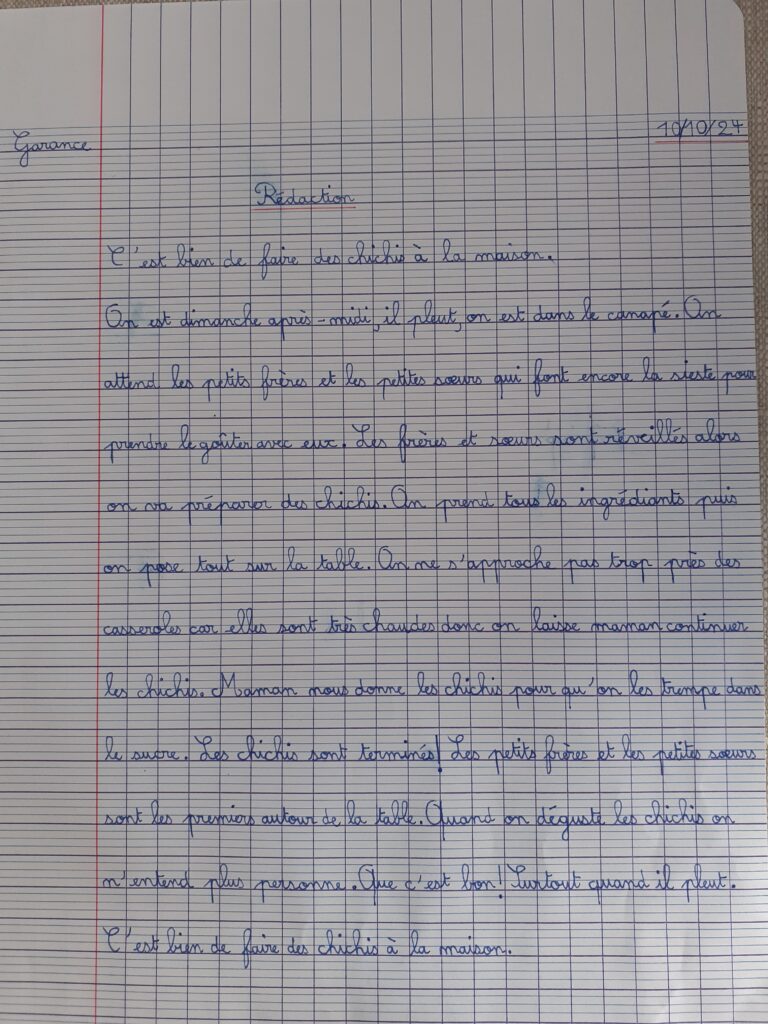 Garance
10/10/24
Rédaction
C'est bien de faire des chichis à la maison.
On est dimanche après-midi, il pleut, on est dans le canapé. On
attend les petits frères et les petites sœurs qui font encore la sieste pour
prendre le goûter avec eux. Les frères et sœurs sont réveillés alors
on va préparer des chichis. On prend tous les ingrédiants puis
on pose tout sur la table. On ne s'approche pas trop près des
casseroles car elles sont très chaudes donc on laisse maman continuer
les chichis. Maman nous donne les chichis pour qu'on les trempe dans
le sucre. Les chichis sont terminés! Les petits frères et les petites sœurs
sont les premiers autour de la table. Quand on déguste les chichis on
n'entend plus personne. Que c'est bon! Surtout quand il pleut.
C'est bien de faire des chichis à la maison.